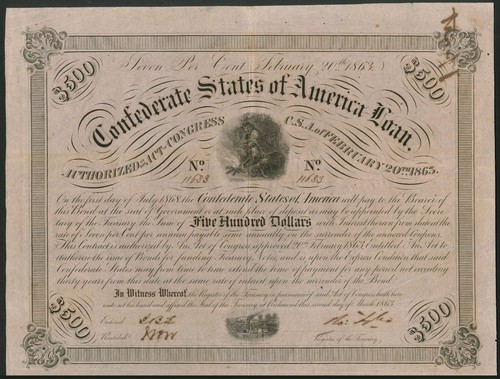 $500
$500
Seven Per Cent February 20th 1863.
Confederate States of America Loan.
AUTHORIZED BY ACT OF CONGRESS C.S.A. of FEBRUARY 20TH 1863.
No. No.
11653 11653
On the first day of July 1868 the Confederate States of America will pay to the Bearer of
this Bond at the seat of Government or at such place of deposit as may be appointed by the Secre-
tary of the Treasury the Sum of Five Hundred Dollars with Interest thereon from date at the
rate of Seven per Cent per annum
This Contract is authorized by An Act of Congress approved 20th February 1863 Entitled An Act to
authorize the issue of Bonds for funding Treasury Notes, and is upon the Express Condition that said
Confederate States may from time to time extend the time of payment for any period not exceeding
thirty years from this date at the same rate of interest upon the surrender of the Bond.
In Witness Whereof, the Register of the Treasury in pursuance of said Act of Congress hath here-
unto set his hand and affixed the Seal of the Treasury at Richmond this second day of March 1863
Entered
Recorded
Register of the Treasury.
$500
$500